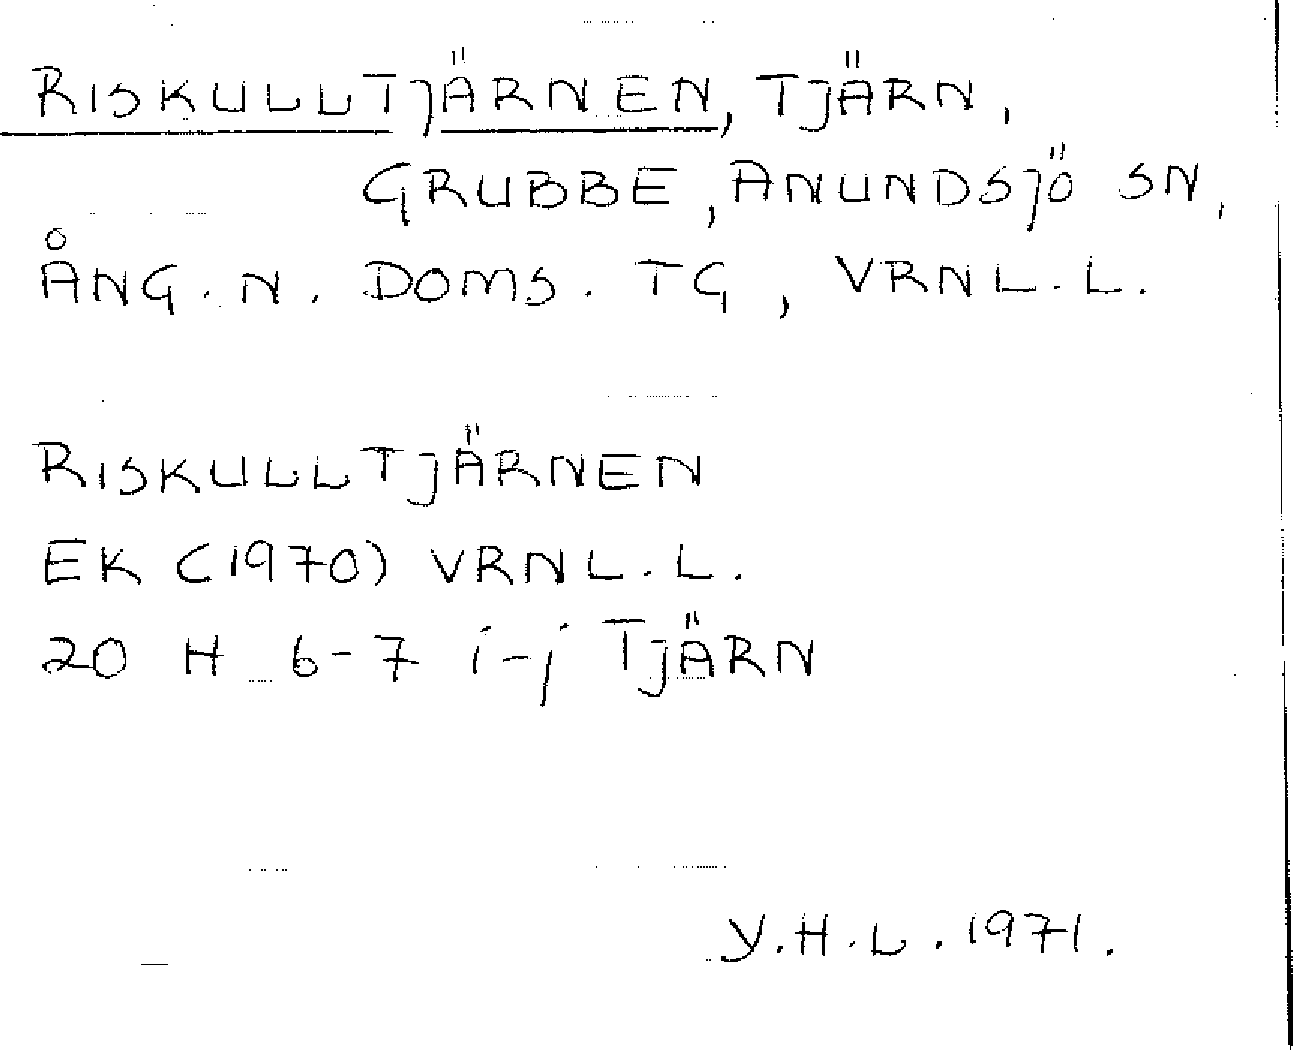 RISKULLTJÄRNEN, TJÄRN,
GRUBBE, ANUNDSJÖ SN,
ÅNG. N. DOMS. TG, VRNL.L.
RISKULLTJÄRNEN
EK (1970) VRNL.L.
20 H 6-7 i-j TJÄRN
Y.H.L. 1971.